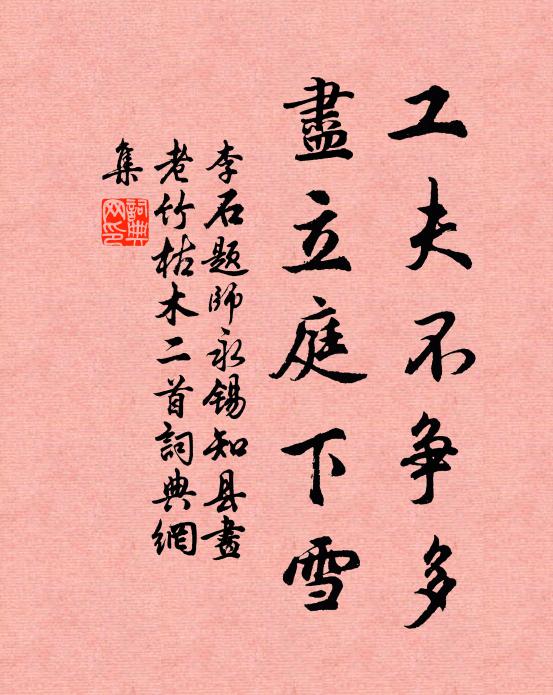 工夫不争多
盡立庭下雪
李石题師永锡知县畫
老竹枯木二首詞典網
集
詞典
网印